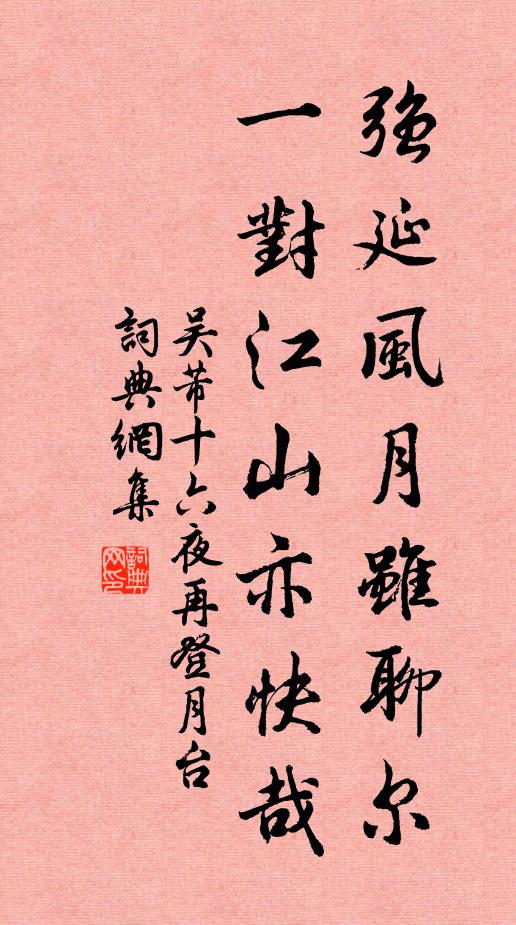 強延風月雖聊尔
一對江山亦快哉
吴芾十六夜再登月台
詞典網集
詞典
网印